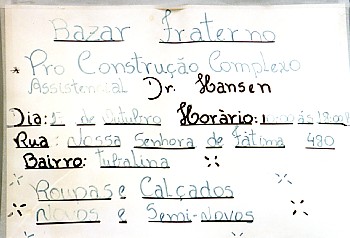 Bazar Fraterno
* Pro Construção Complexo
Assistencial Dr. Hansen
Dia: de Outubro Horàrio: ás
Rua: Nossa Senhora de Fátima 480
Bairro: Tubalina
Roupas e Calçados
Novos e Semi-Novos